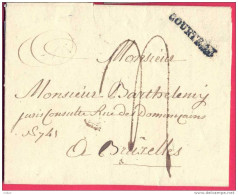 COURTRAI
Monsieur
Monsieur Barthelemij
près Consulte Rüe des Dominiquains
N 741
A Bruxelles